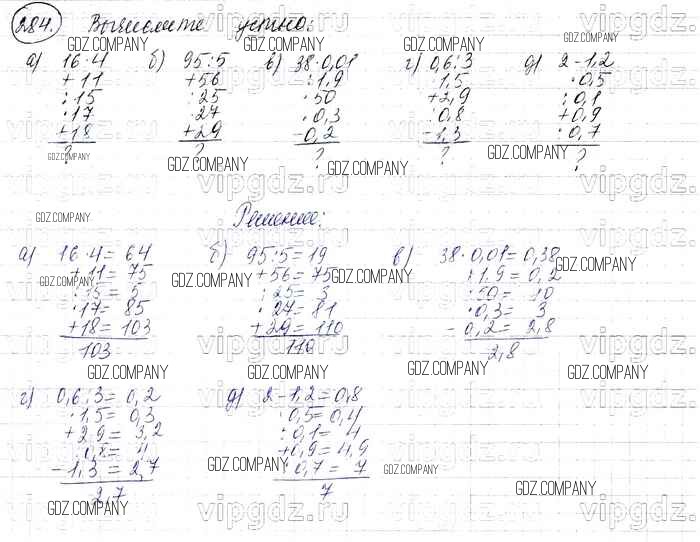 284. Вычислите устно:
а) 16·4 б) 95:5 в) 38·0,01 г) 0,6:3 д) 2-1,2
+11 +56 :1,9 ·1,5 ·0,5
:15 :25 ·50 +2,9 :0,1
·17 ·27 ·0,3 :0,8 +0,9
+18 +29 -0,2 -1,3 :0,7
? ? ? ? ?
Решение:
а) 16·4=64 б) 95:5=19 в) 38·0,01=0,38
+11=75 +56=75 :1,9=0,2
:15=5 :25=3 ·50=10
·17=85 ·27=81 ·0,3=3
+18=103 +29=110 -0,2=2,8
103 110 2,8
г) 0,6:3=0,2 д) 2-1,2=0,8
·1,5=0,3 ·0,5=0,4
+2,9=3,2 :0,1=4
:0,8=4 +0,9=4,9
-1,3=2,7 :0,7=7
2,7 7
GDZ.COMPANY
vipgdz.ru